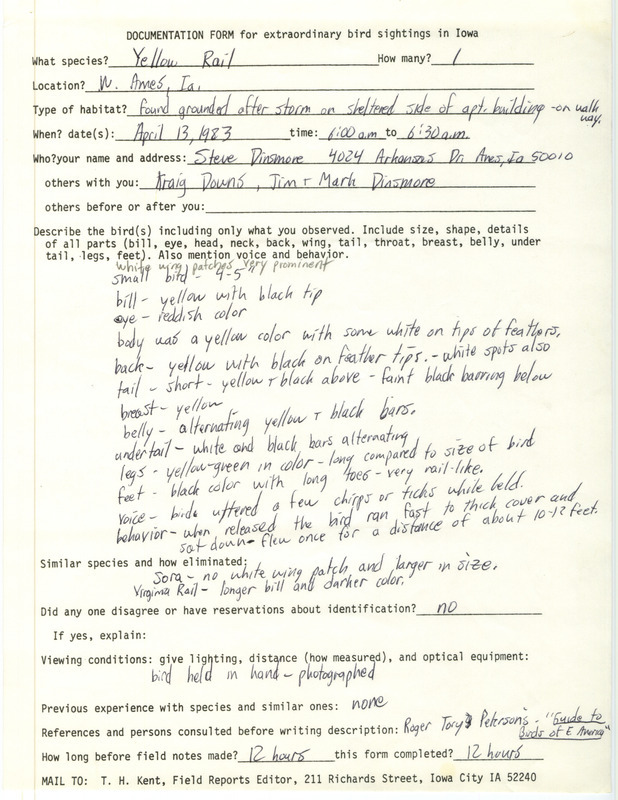 DOCUMENTATION FORM for extraordinary bird sightings in Iowa
What species? Yellow Rail How many? 1
Location? W. Ames, Ia.
Type of habitat? found grounded after storm on sheltered side of apt. building - on walk way.
When? date(s): April 13, 1983 time: 6:00 a.m to 6:30 a.m.
Who? your name and address: Steve Dinsmore 4024 Arkansas Dr. Ames, Ia 50010
others with you: Kraig Downs, Jim + Mark Dinsmore
others before or after you:
Describe the bird(s) including only what you observed. Include size, shape, details
of all parts (bill, eye, head, neck, back, wing, tail, throat, breast, belly, under
tail, legs, feet). Also mention voice and behavior.
white wing patches very prominent
small bird - 4-5"
bill - yellow with black tip
eye - reddish color
body was a yellow color with some white on tips of feathers.
back - yellow with black on feather tips. - white spots also
tail - short - yellow + black above - faint black barring below
breast - yellow
belly - alternating yellow + black bars.
undertail - white and black bars alternating
legs - yellow-green in color - long compared to size of bird
feet - black color with long toes - very rail-like.
voice - birds uttered a few chirps or ticks while held.
behavior - when released the bird ran fast to thick cover and
sat down - flew once for a distance of about 10-12 feet.
Similar species and how eliminated:
Sora - no white wing patch and larger in size.
Virginia Rail - longer bill and darker color.
Did any one disagree or have reservations about identification? no
If yes, explain:
Viewing conditions: give lighting, distance (how measured), and optical equipment:
bird held in hand - photographed
Previous experience with species and similar ones: none
References and persons consulted before writing description: Roger Tory Peterson's - "Guide to
Birds of E America"
How long before field notes made? 12 hours this form completed? 12 hours
MAIL TO: T. H. Kent, Field Reports Editor, 211 Richards Street, Iowa City IA 52240